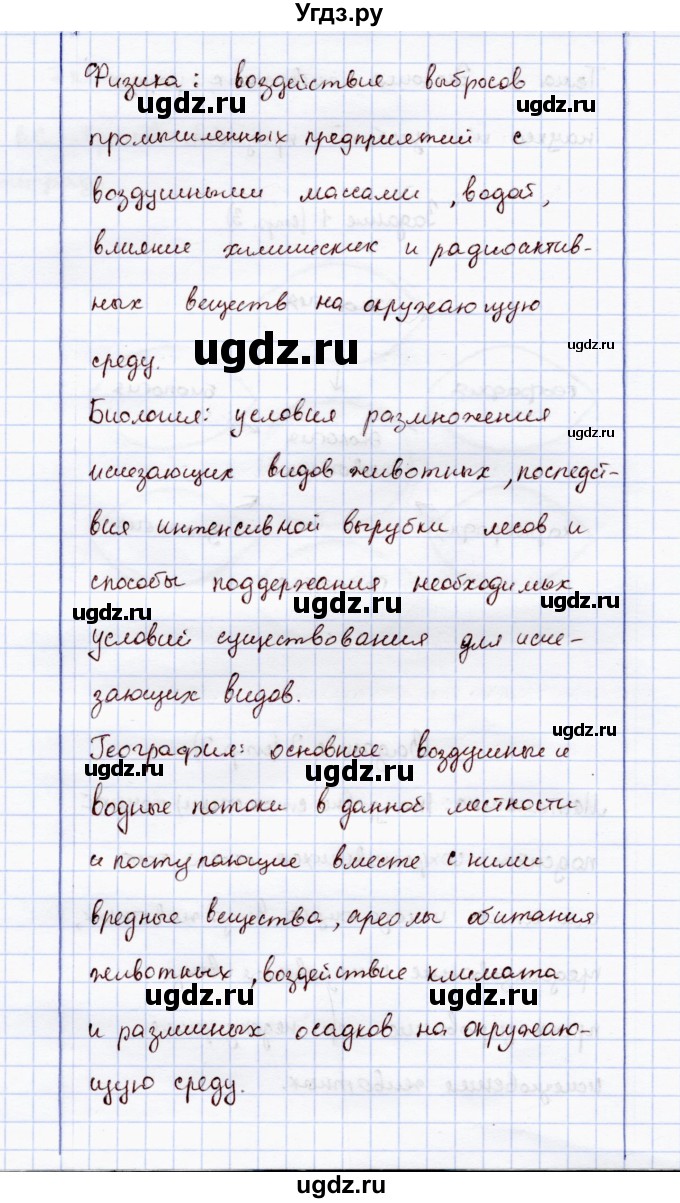 Угдз.ру
Физика: воздействие выбросов
ugdz.ru ugdz.ru
промышленных предприятий с
воздушными массами, водой,
влияние химических и радиоактив-
ных веществ на окружающую
ugdz.ru ugdz.ru
среду.
Биология: условия размножения
ugdz.ru
исчезающих видов животных, последст-
вия интенсивной вырубки лесов и
способы поддержания необходимых
ugdz.ru ugdz.ru ugdz.ru
условий существования для исче-
зающих видов.
География: основные воздушные и
ugdz.ru ugdz.ru ugdz.ru
водные потоки в данной местности
и поступающие вместе с ними
вредные вещества, ареолы обитания
животных, воздействие климата
ugdz.ru ugdz.ru
и различных осадков на окружаю-
щую среду.
ugdz.ru